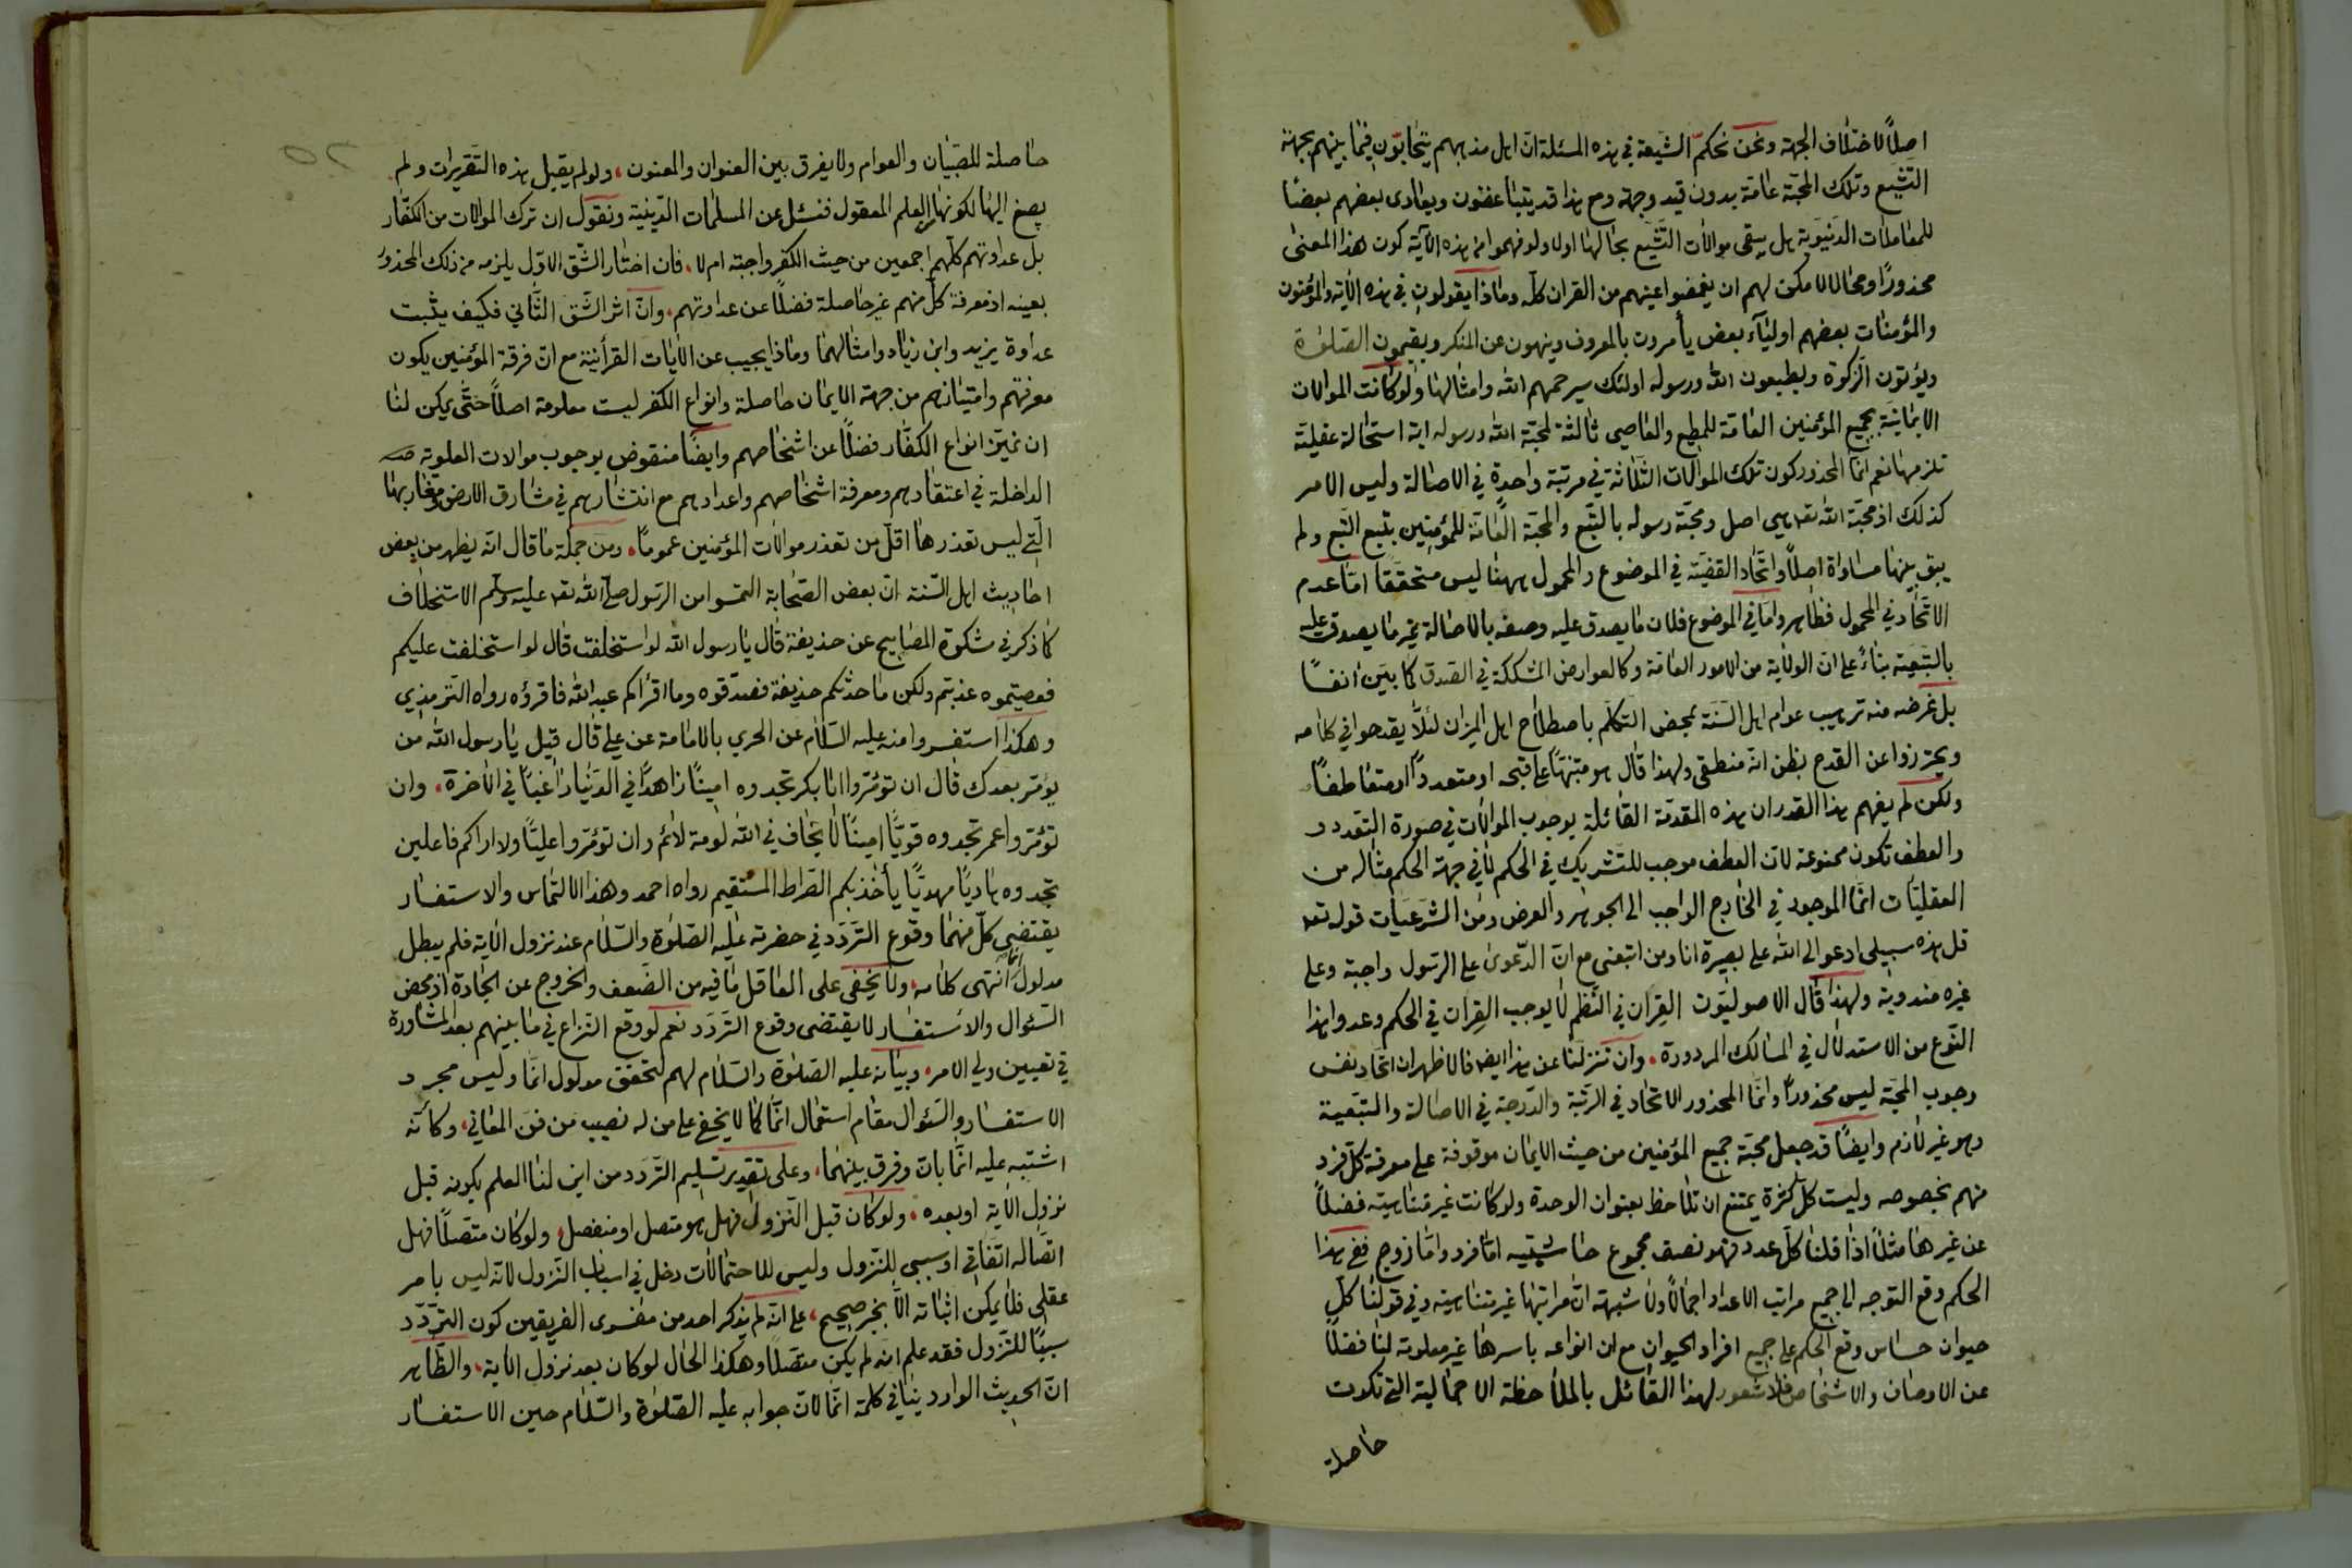 اصلاً لاختلاف الجهة ونحن نحكم الشيعة في هذه المسئلة ان اهل مذهبهم يتحابون فيما بينهم بجهة
التشيع وتلك المحبة عامة بدون قيد وجهة ومع هذا قد يتباغضون ويعادى بعضهم بعضا
للمعاملات الدنيوية هل يبقى موالات التشيع بحالها اولا ولو فهموا من هذه الآية كون هذا المعنى
محذورًا ومحالا لا مكن لهم ان يغمضوا عينهم من القران كله وماذا يقولون في هذه الاية والمؤمنون
والمؤمنات بعضهم اوليآء بعض يأمرون بالمعروف وينهون عن المنكر ويقيمون الصلوة
ويؤتون الزكوة ويطيعون الله ورسوله اولئك سيرحمهم الله وامثالها ولو كانت الموالات
الايمانية بجميع المؤمنين العامة للمطيع والعاصي ثالثة لمحبة الله ورسوله اية استحالة عقلية
تلزمها نعم انما المحذور كون تلك الموالات الثلاثة في مرتبة واحدة في الاصالة وليس الامر
كذلك اذ محبة الله تعه هي اصل ومحبة رسوله بالتبع والمحبة العامة للمؤمنين بتبع التبع ولم
يبق بينها مساواة اصلاً واتحاد القضية في الموضوع والمحمول ههنا ليس متحققا اما عدم
الاتحاد في المحمول فظاهر واما في الموضوع فلان ما يصدق عليه وصفه بالاصالة غير ما يصدق عليه
بالتبعية بناءً على ان الولاية من الامور العامة وكالعوارض المشككة في الصدق كما بين انفًا
بل غرضه منه ترهيب عوام اهل السنة بمحض التكلم باصطلاح اهل الميزان لئلا يقدحوا في كلامه
ويحترزوا عن القدح بظن انه منطقى ولهذا قال هو متنبهًا على قبحه او متعددًا او متعاطفًا
ولكن لم يفهم هذا القدر ان هذه المقدمة القائلة بوجوب الموالات في صورة التعدد
والعطف تكون ممنوعة لان العطف موجب للتشريك في الحكم لا في جهة الحكم مثاله من
العقليات انما الموجود في الخارج الواجب الى الجوهر والعرض ومن الشرعيات قوله تعه
قل هذه سبيلى ادعو الى الله على بصيرة انا ومن اتبعنى مع ان الدعوى على الرسول واجبة وعلى
غيره مندوبة ولهذا قال الاصوليون القِران في النظم لا يوجب القِران في الحكم وعدوا هذا
النوع من الاستدلال في المسالك المردودة، وان تنزلنا عن هذا ايضا فالاظهر ان اتحاد نفس
وجوب المحبة ليس محذورًا وانما المحذور الاتحاد في الرتبة والدرجة في الاصالة والتبعية
وهو غير لازم وايضًا قد جعل محبة جميع المؤمنين من حيث الايمان موقوفة على معرفة كل فرد
منهم بخصوصه وليست كل كثرة يمتنع ان تلاحظ بعنوان الوحدة ولو كانت غير متناهية فضلاً
عن غيرها مثلاً اذا قلنا كل عدد فهو نصف مجموع حاشيتيه اما فرد واما زوج ففي هذا
الحكم وقع التوجه الى جميع مراتب الاعداد اجمالاً ولا شبهة ان مراتبها غير متناهية وفي قولنا كل
حيوان حساس وقع الحكم على جميع افراد الحيوان مع ان انواعه باسرها غير معلومة لنا فضلا
عن الاوصاف والاشخاص فلا شعور لهذا القائل بالملاحظة الاجمالية التي تكون
حاصلة
حاصلة للصبيان والعوام ولا يفرق بين العنوان والمعنون، ولو لم يقبل هذه التقريرات ولم
يصغ اليها لكونها من العلم المعقول فنسئل عن المسلمات الدينية ونقول ان ترك الموالات من الكفار
بل عداوتهم كلهم اجمعين من حيث الكفر واجبة ام لا، فان اختار الشق الاول يلزمه من ذلك المحذور
بعينه اذ معرفة كل منهم غير حاصلة فضلاً عن عداوتهم، وان اثر الشق الثاني فكيف يثبت
عداوة يزيد وابن زياد وامثالهما وماذا يجيب عن الايات القرأنية مع ان فرقة المؤمنين يكون
معرفتهم وامتيازهم من جهة الايمان حاصلة وانواع الكفر ليست معلومة اصلاً حتى يمكن لنا
ان نميز انواع الكفار فضلاً عن اشخاصهم وايضًا منقوض بوجوب موالات العلوية
الداخلة في اعتقادهم ومعرفة اشخاصهم واعدادهم مع انتشارهم في مشارق الارض ومغاربها
التي ليس تعذرها اقل من تعذر موالات المؤمنين عمومًا، ومن جملة ما قال انه يظهر من بعض
احاديث اهل السنة ان بعض الصحابة التمسوا من الرسول صلى الله تعه عليه وسلم الاستخلاف
كما ذكر في مشكوة المصابيح عن حذيفة قال يا رسول الله لو استخلفت قال لو استخلفت عليكم
فعصيتموه عذبتم ولكن ما حدثكم حذيفة فصدقوه وما اقرأكم عبد الله فاقرؤه رواه الترمذي
وهكذا استفسروا منه عليه السلام عن الحري بالامامة عن علي قال قيل يا رسول الله من
يؤمر بعدك قال ان تؤمروا ابا بكر تجدوه امينًا زاهدًا في الدنيا راغبًا في الاخرة، وان
تؤمروا عمر تجدوه قويًا امينًا لا يخاف في الله لومة لائم وان تؤمروا عليًا ولا اراكم فاعلين
تجدوه هاديًا مهديًا يأخذ بكم الصراط المستقيم رواه احمد وهذا الالتماس والاستفسار
يقتضي كل منهما وقوع التردد في حضرته عليه الصلوة والسلام عند نزول الاية فلم يبطل
مدلول انما انتهى كلامه، ولا يخفى على العاقل ما فيه من الضعف والخروج عن الجادة اذ محض
السئوال والاستفسار لا يقتضى وقوع التردد نعم لو وقع النزاع في ما بينهم بعد المشاورة
في تعيين ولي الامر، وبيانه عليه الصلوة والسلام لهم لتحقق مدلول انما وليس مجرد
الاستفسار والسئوال مقام استعمال انما كما لا يخفى على من له نصيب من فن المعاني، وكانه
اشتبه عليه انما بان وفرق بينهما، وعلى تقدير تسليم التردد من اين لنا العلم بكونه قبل
نزول الاية او بعده، ولو كان قبل النزول فهل هو متصل او منفصل، ولو كان متصلاً فهل
اتصاله اتفاقي او سببي للنزول وليس للاحتمالات دخل في اسباب النزول لانه ليس بامر
عقلي فلا يمكن اثباته الا بخبر صحيح، على انه لم يذكر احد من مفسرى الفريقين كون التردد
سببًا للنزول فقد علم انه لم يكن متصلاً وهكذا الحال لو كان بعد نزول الاية، والظاهر
ان الحديث الوارد ينافي كلمة انما لان جوابه عليه الصلوة والسلام حين الاستفسار